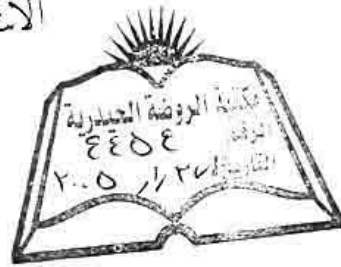 مكتبة الروضة الحيدرية
الرقم ٤٤٥٤
التاريخ ٢٠٠٥